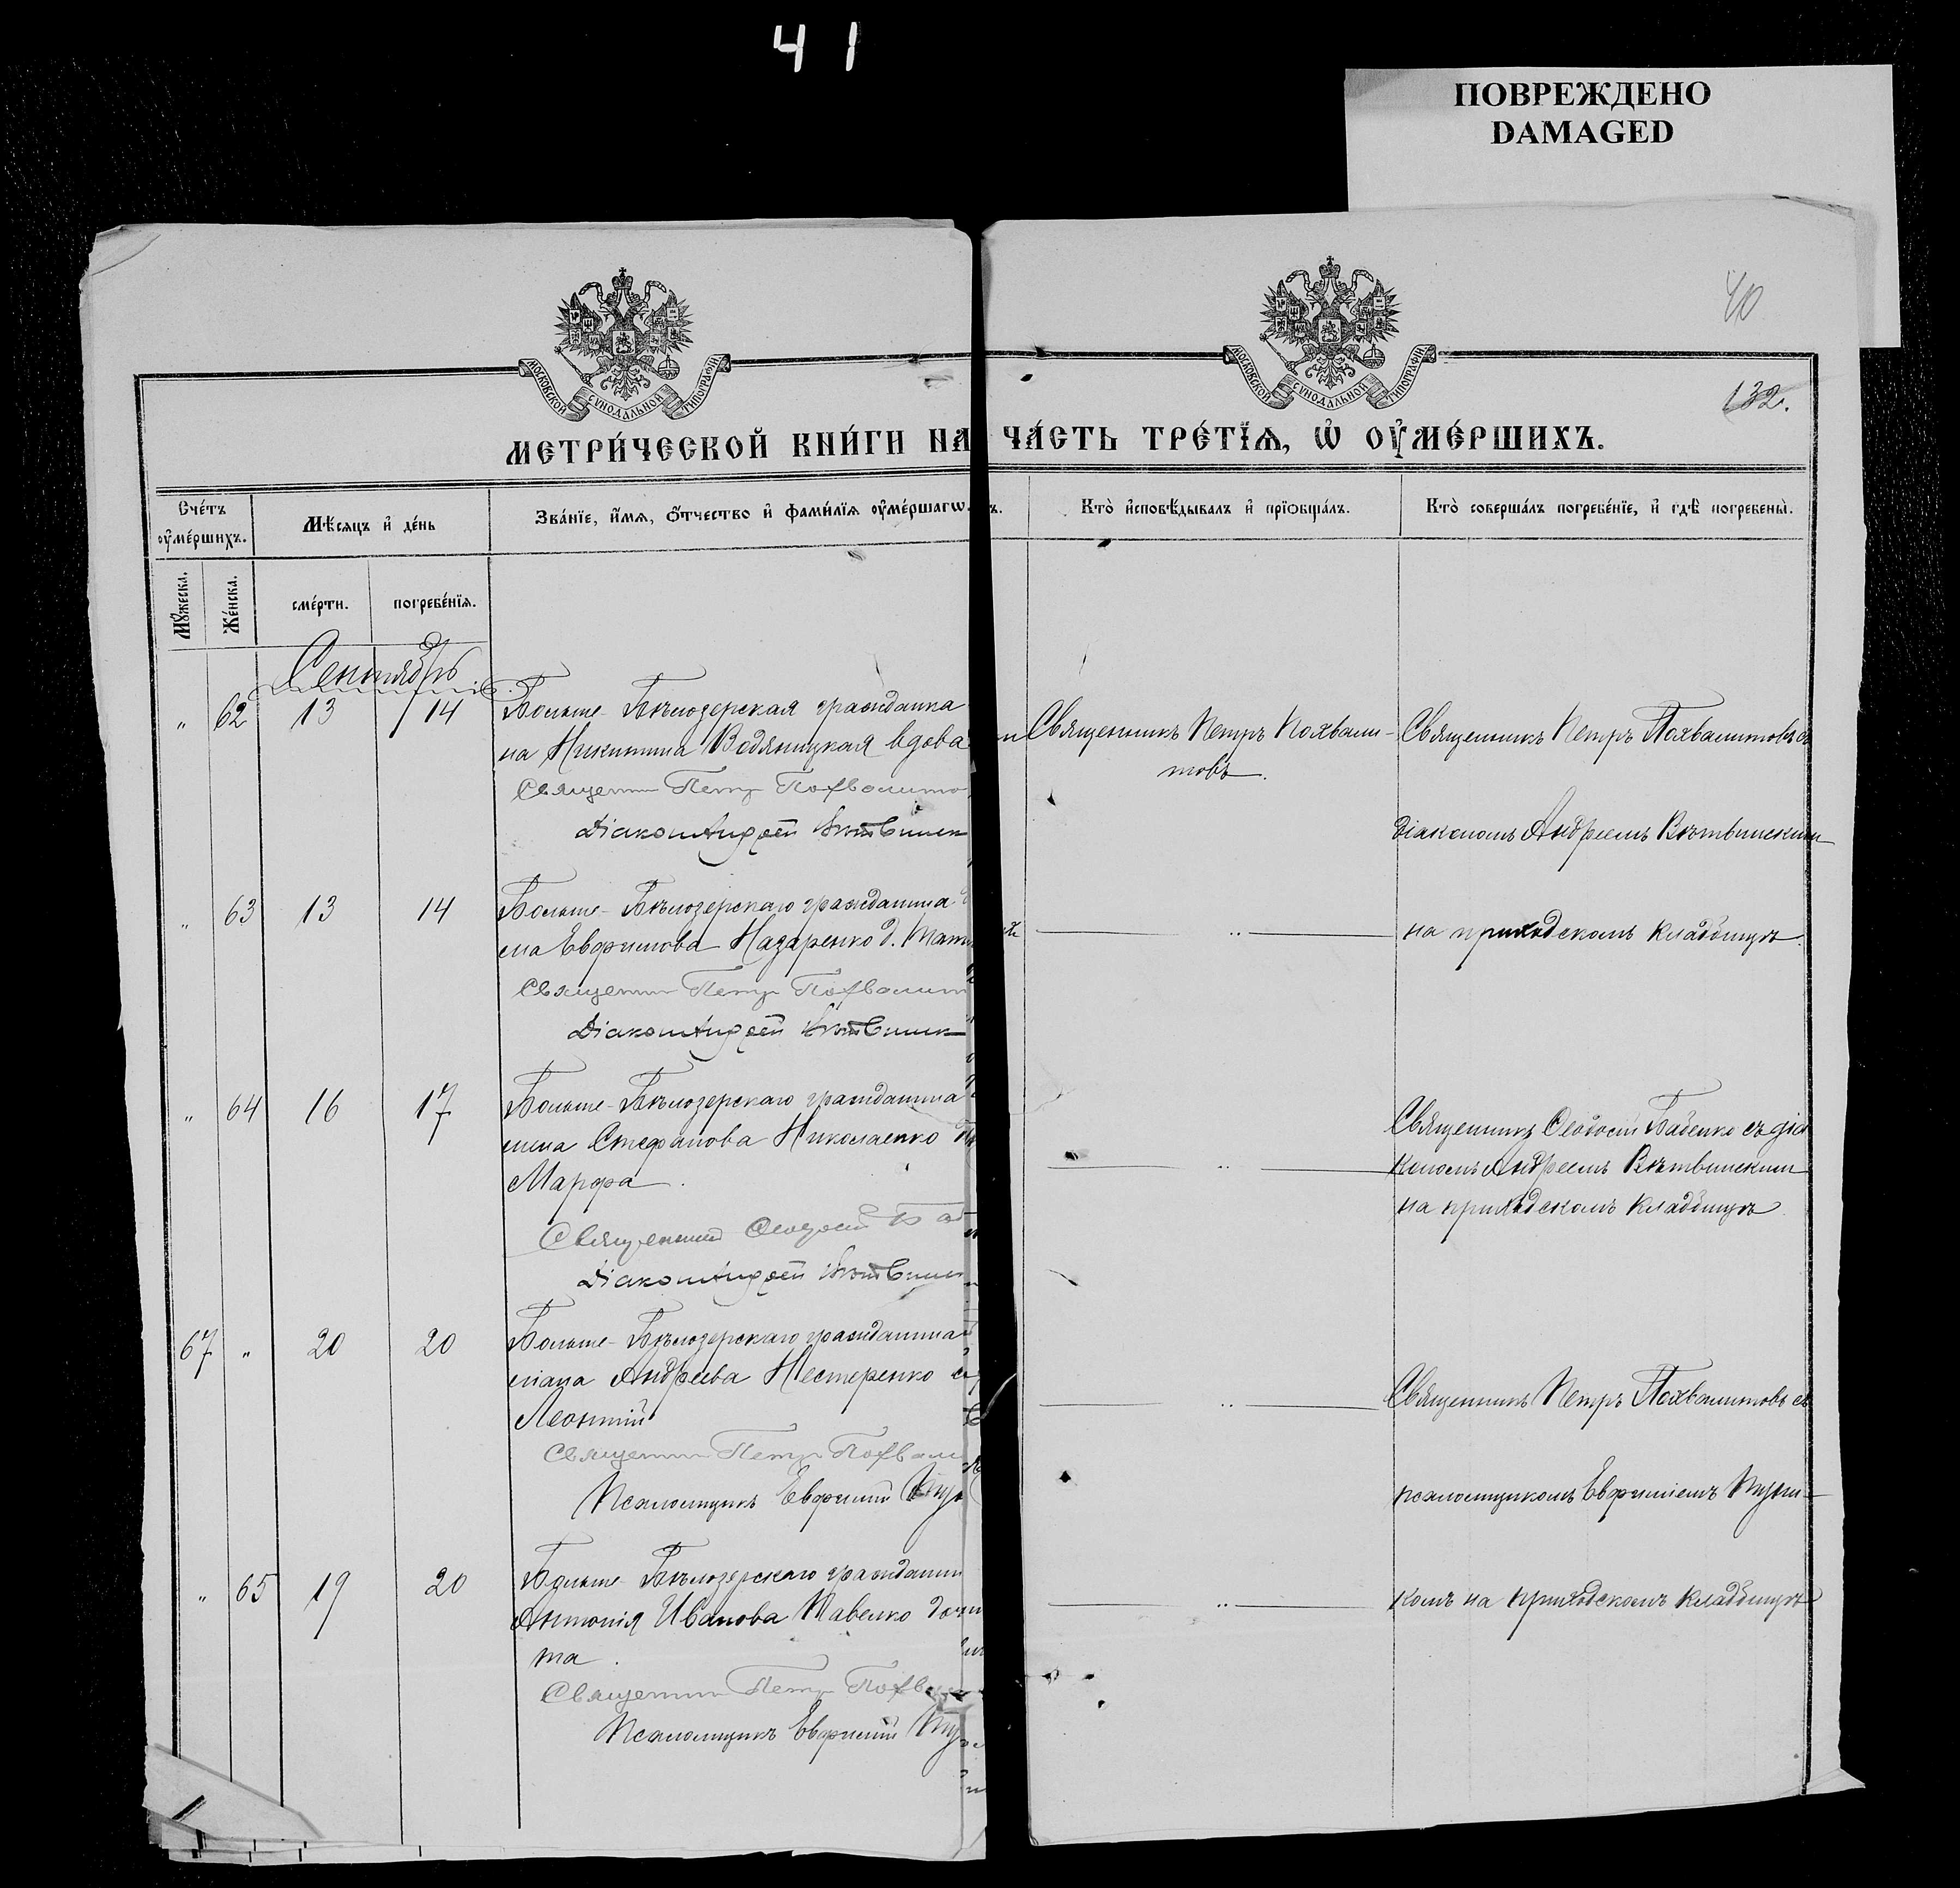 41
ПОВРЕЖДЕНО
DAMAGED
40
132.
МОСКОВСКОЙ СѴНОДАЛЬНОЙ ТИПОГРАФІИ
МОСКОВСКОЙ СѴНОДАЛЬНОЙ ТИПОГРАФІИ
МЕТРИ́ЧЕСКОЙ КНИ́ГИ НА
ЧА́СТЬ ТРЕ́ТЇѦ, Ѡ҆ ОУ҆МЕ́РШИХЪ.
Сче́тъ оу҆ме́ршихъ.
Мѣ́сяцъ и҆ де́нь
Зва́нїе, и҆́мѧ, ѻ҆́тчество и҆ фами́лїѧ оу҆ме́ршагѡ.
ъ.
Кто̀ и҆сповѣ́дывалъ и҆ прїѡбща́лъ.
Кто̀ соверша́лъ погребе́нїе, и҆ гдѣ̀ погребены̀.
Мꙋ́жеска.
Же́нска.
сме́рти.
погребе́нїѧ.
Сентябрь
" 62 13 14 Больше-Бѣлозерская гражданка
на Никитина Водяницкая вдова
Священник Петр Похвалито
Діакон Андрей Вѣтвинск
Священникъ Петръ Похвали-
товъ.
Священникъ Петръ Похвалитовъ съ
діакономъ Андреемъ Вѣтвинскимъ
" 63 13 14 Больше-Бѣлозерскаго гражданина
ела Евфимова Назаренко д. Тат
Священник Петр Похвалит
Діакон Андрей Вѣтвинск
"
на приходскомъ кладбищѣ.
" 64 16 17 Больше-Бѣлозерскаго гражданина
Стефанова Николаенко
Марфа.
Священник Ѳеодосій Баб
Діакон Андрей Вѣтвинск
"
Священникъ Ѳеодосій Бабенко съ діа
кономъ Андреемъ Вѣтвинскимъ
на приходскомъ кладбищѣ
67 " 20 20 Больше-Бѣлозерскаго гражданина
еліана Андреева Нестеренко
Леонтій
Священник Петр Похвали
Псаломщикъ Евфимій
"
Священникъ Петръ Похвалитовъ съ
псаломщикомъ Евфиміемъ
" 65 19 20 Больше-Бѣлозерскаго граждани
Антонія Иванова Павелко дочь
та.
Священник Петр Похв
Псаломщикъ Евфимій
"
комъ на приходскомъ кладбищѣ